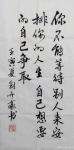 你不能等待别人来安
排你的人生自己想要
的自己争取
壬寅夏